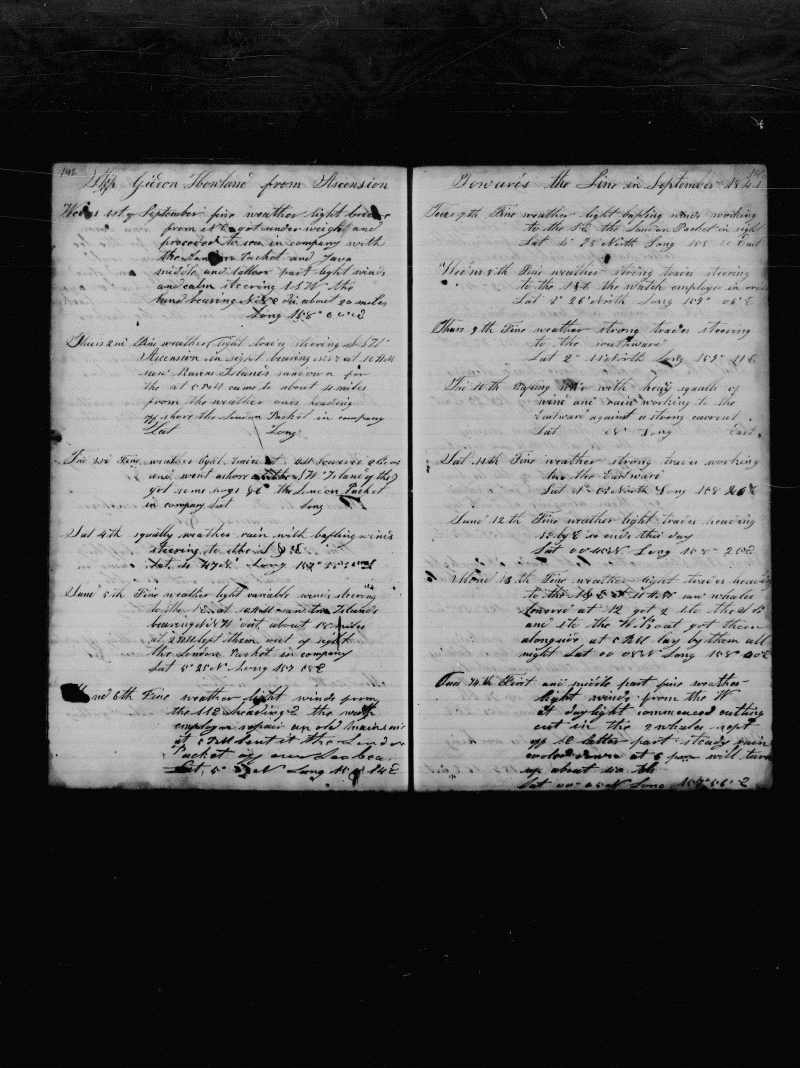 142
Ship Gideon Howland from Ascension
Wedns 1st of September fine weather light breeze
from N E got under weight and
proceeded to sea in company with
the London Packet and Java
middle and latter part light winds
and calm steering S S W the
land bearing dis about 20 miles
Long 158°
Thurs 2nd Fine weather light trades steering
Ascension in sight bearing at 10 AM
saw Island ran down for
the at 5 PM came to about 4 miles
from the weather ones heading
off shore the London Packet in company
Lat Long
Fri 3rd Fine weather light trades at lowered 2 Boats
and went ashore S W Island of the
got some nogs &c the London Packet
in company Lat Long
Sat 4th squally weather rain with bafling winds
steering to the
Lat 4 47 N Long 157°
Sund 5th Fine weather light variable winds steering
to the at saw Islands
bearing N W dist about 18 miles
at 2 PM left them out of sight
the London Packet in company
Lat 5° 25 N Long 157 58 E
6th Fine weather light winds from
the heading the watch
employn repair an old mainsail
at 5 PM sent it the London
Packet off our Lee beam
Lat 5° N Long 14 E
Towards the Line in September 1841
Tues 7th Fine weather light bafling winds working
to the S E the London Packet in sight
Lat 4° 28 North Long 158 10 East
Wedns 8th Fine weather strong trades steering
to the the watch employed in
Lat 3° 26 North Long 158° 06 E
Thurs 9th Fine weather strong trades steering
to the southward
Lat 2° North Long 158° 11 E
Fri 10th wind with heavy squalls of
wind and rain working to the
Eastward against a strong current
Lat N Long East
Sat 11th Fine weather strong trades working
to the Eastward
Lat 1° 03 North Long 158 26 E
Sund 12th Fine weather light trades heading
S by E so ends this day
Lat 00 45 N Long 158° 25 E
Mond 13th Fine weather light trades heading
to the at 11 AM saw whales
Lowered at 12 got 2 1 to the S B
and 1 to the W. Boat got them
alongside at 5 PM lay by them all
night Lat 00 08 N Long 158° 00 E
Tues 14th First and middle part fine weather
light winds from the W
At daylight commenced cutting
cut in the 2 whales
latter part steady rain
cooled down at 6 pm will turn
up about 40 bbl
Lat 00° 05 N Long 157° 56 E